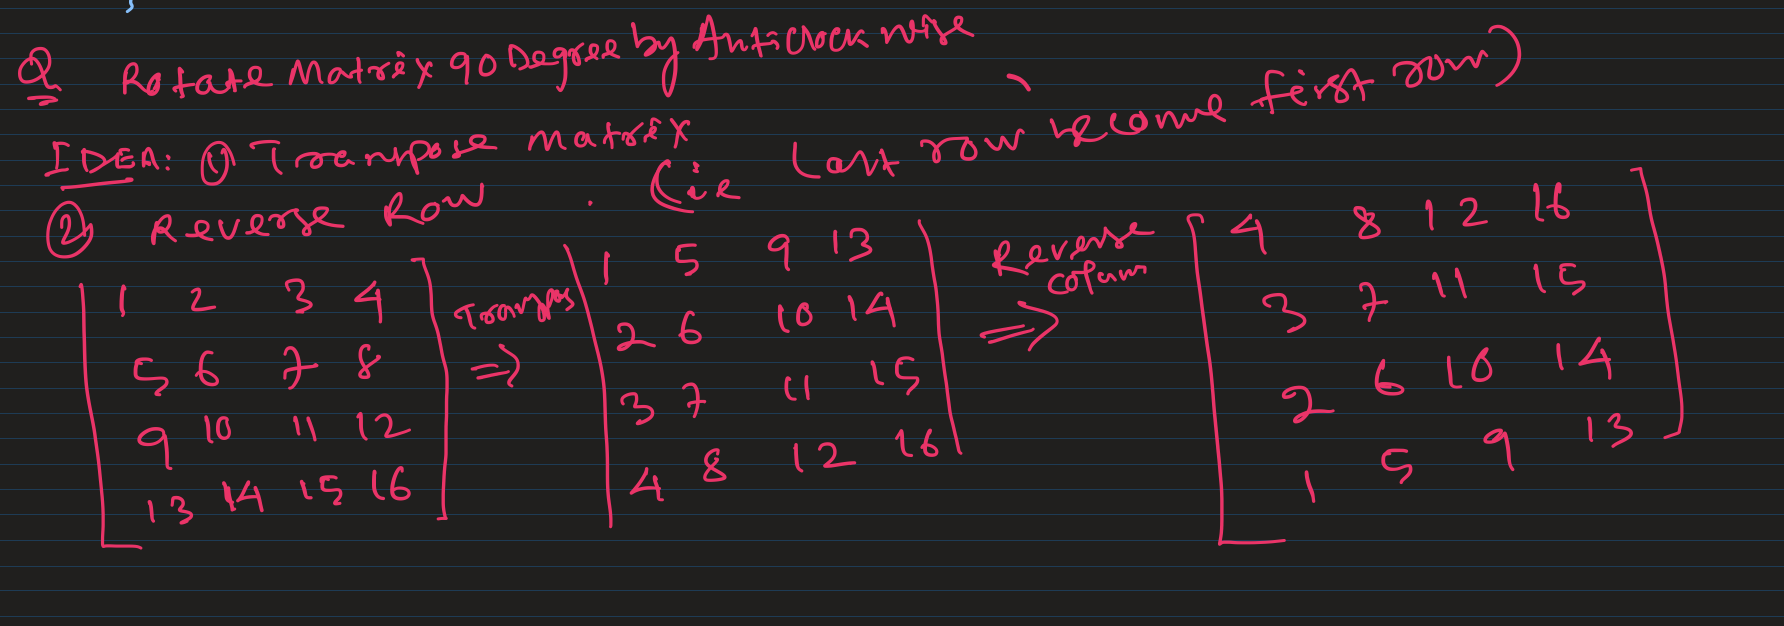 Q Rotate Matrix 90 Degree by Anticlockwise
IDEA: ① Tranpose matrix
② Reverse Row . (ie Last row become first row)
1 2 3 4
5 6 7 8
9 10 11 12
13 14 15 16
Tranpos
⇒
1 5 9 13
2 6 10 14
3 7 11 15
4 8 12 16
Reverse
colum
⇒
4 8 12 16
3 7 11 15
2 6 10 14
1 5 9 13